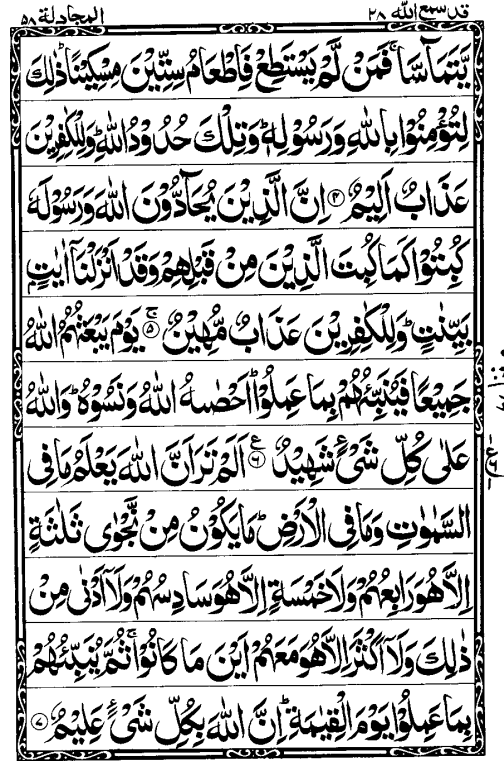 قد سمع الله ٢٨
المجادلة ٥٨
يَّتَمَآسَّا ؕ فَمَنْ لَّمْ يَسْتَطِعْ فَاِطْعَامُ سِتِّيْنَ مِسْكِيْنًا ؕ ذٰلِكَ
لِتُؤْمِنُوْا بِاللّٰهِ وَرَسُوْلِهٖ ؕ وَتِلْكَ حُدُوْدُ اللّٰهِ ؕ وَلِلْكٰفِرِيْنَ
عَذَابٌ اَلِيْمٌ ۝۴ اِنَّ الَّذِيْنَ يُحَآدُّوْنَ اللّٰهَ وَرَسُوْلَهٗ
كُبِتُوْا كَمَا كُبِتَ الَّذِيْنَ مِنْ قَبْلِهِمْ وَقَدْ اَنْزَلْنَاۤ اٰيٰتٍۭ
بَيِّنٰتٍ ؕ وَلِلْكٰفِرِيْنَ عَذَابٌ مُّهِيْنٌ ۝۵ ۚ يَوْمَ يَبْعَثُهُمُ اللّٰهُ
جَمِيْعًا فَيُنَبِّئُهُمْ بِمَا عَمِلُوْا ؕ اَحْصٰىهُ اللّٰهُ وَنَسُوْهُ ؕ وَاللّٰهُ
عَلٰى كُلِّ شَىْءٍ شَهِيْدٌ ۝۶ ع اَلَمْ تَرَ اَنَّ اللّٰهَ يَعْلَمُ مَا فِى
السَّمٰوٰتِ وَمَا فِى الْاَرْضِ ؕ مَا يَكُوْنُ مِنْ نَّجْوٰى ثَلٰثَةٍ
اِلَّا هُوَ رَابِعُهُمْ وَلَا خَمْسَةٍ اِلَّا هُوَ سَادِسُهُمْ وَلَاۤ اَدْنٰى مِنْ
ذٰلِكَ وَلَاۤ اَكْثَرَ اِلَّا هُوَ مَعَهُمْ اَيْنَ مَا كَانُوْا ۚ ثُمَّ يُنَبِّئُهُمْ
بِمَا عَمِلُوْا يَوْمَ الْقِيٰمَةِ ؕ اِنَّ اللّٰهَ بِكُلِّ شَىْءٍ عَلِيْمٌ ۝۷